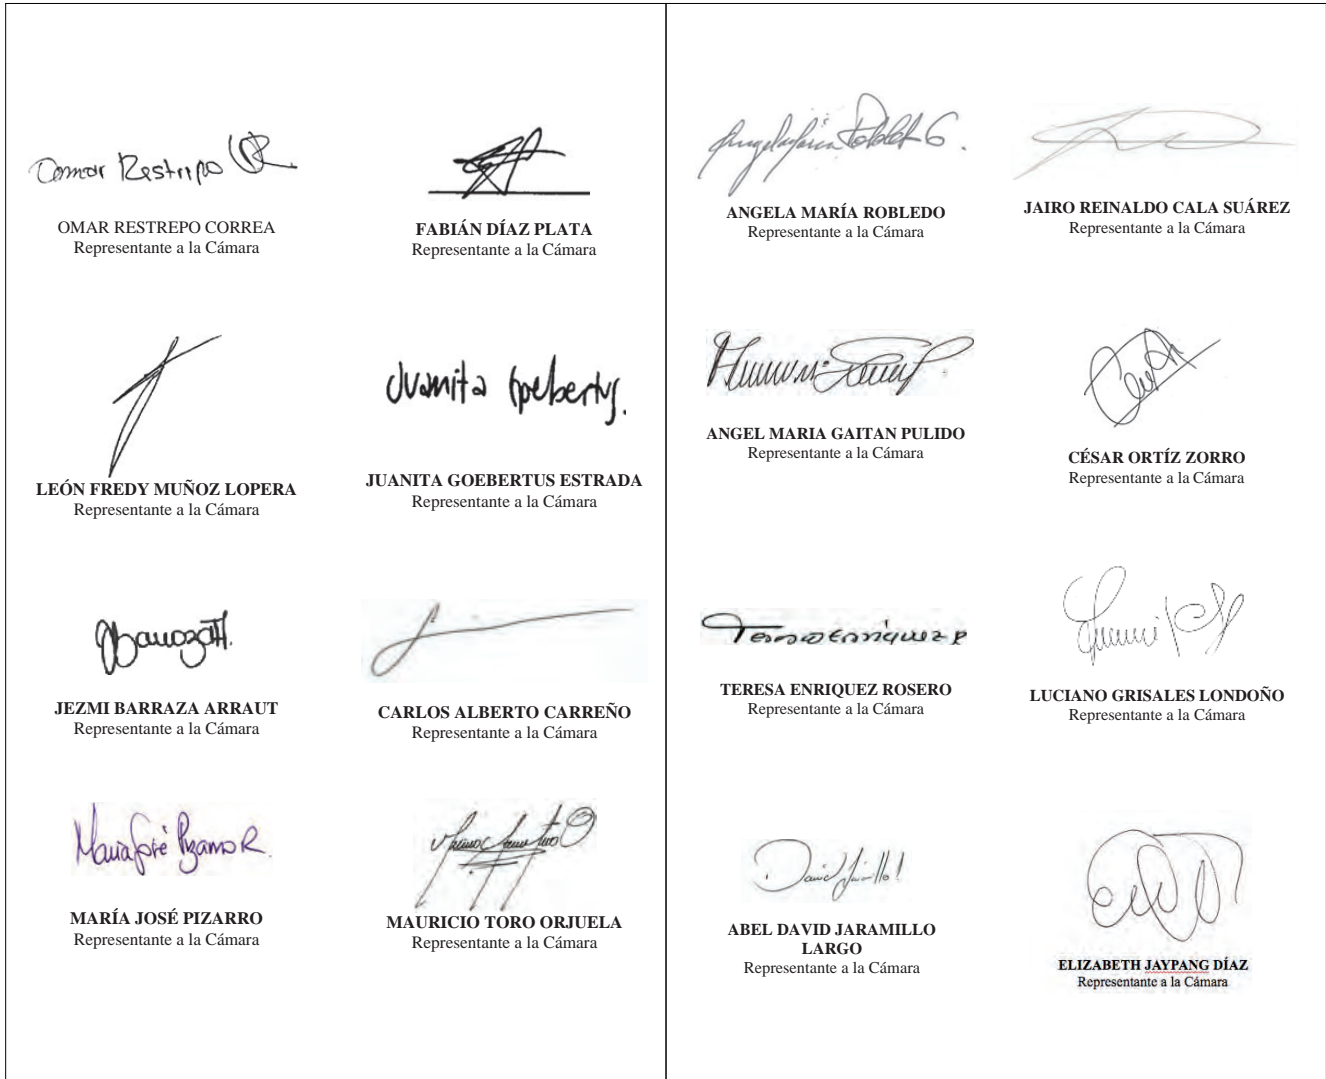 Omar Restrepo
OMAR RESTREPO CORREA
Representante a la Cámara
FABIÁN DÍAZ PLATA
Representante a la Cámara
LEÓN FREDY MUÑOZ LOPERA
Representante a la Cámara
Juanita Goebertus.
JUANITA GOEBERTUS ESTRADA
Representante a la Cámara
JEZMI BARRAZA ARRAUT
Representante a la Cámara
CARLOS ALBERTO CARREÑO
Representante a la Cámara
María José Pizarro R.
MARÍA JOSÉ PIZARRO
Representante a la Cámara
MAURICIO TORO ORJUELA
Representante a la Cámara
Angela María Robledo G.
ANGELA MARÍA ROBLEDO
Representante a la Cámara
JAIRO REINALDO CALA SUÁREZ
Representante a la Cámara
ANGEL MARIA GAITAN PULIDO
Representante a la Cámara
CÉSAR ORTÍZ ZORRO
Representante a la Cámara
Teresa Enriquez R
TERESA ENRIQUEZ ROSERO
Representante a la Cámara
LUCIANO GRISALES LONDOÑO
Representante a la Cámara
David Jaramillo
ABEL DAVID JARAMILLO
LARGO
Representante a la Cámara
ELIZABETH JAYPANG DÍAZ
Representante a la Cámara